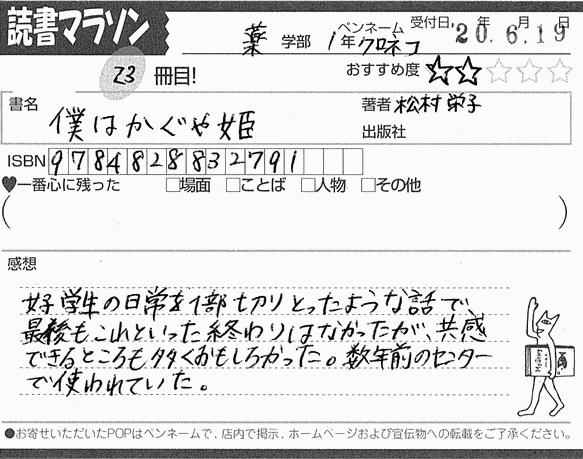 読書マラソン
薬 学部 1年 ペンネーム クロネコ 受付日 '20年6月19日
23冊目!
おすすめ度 ★★☆☆☆
書名 僕はかぐや姫
著者 松村栄子
出版社
ISBN 9784828832791
♥一番心に残った □場面 □ことば □人物 □その他
( )
感想
女子学生の日常を1部切りとったような話で、
最後もこれといった終わりはなかったが、共感
できるところも多くおもしろかった。数年前のセンター
で使われていた。
●お寄せいただいたPOPはペンネームで、店内で掲示、ホームページおよび宣伝物への転載をご了承ください。